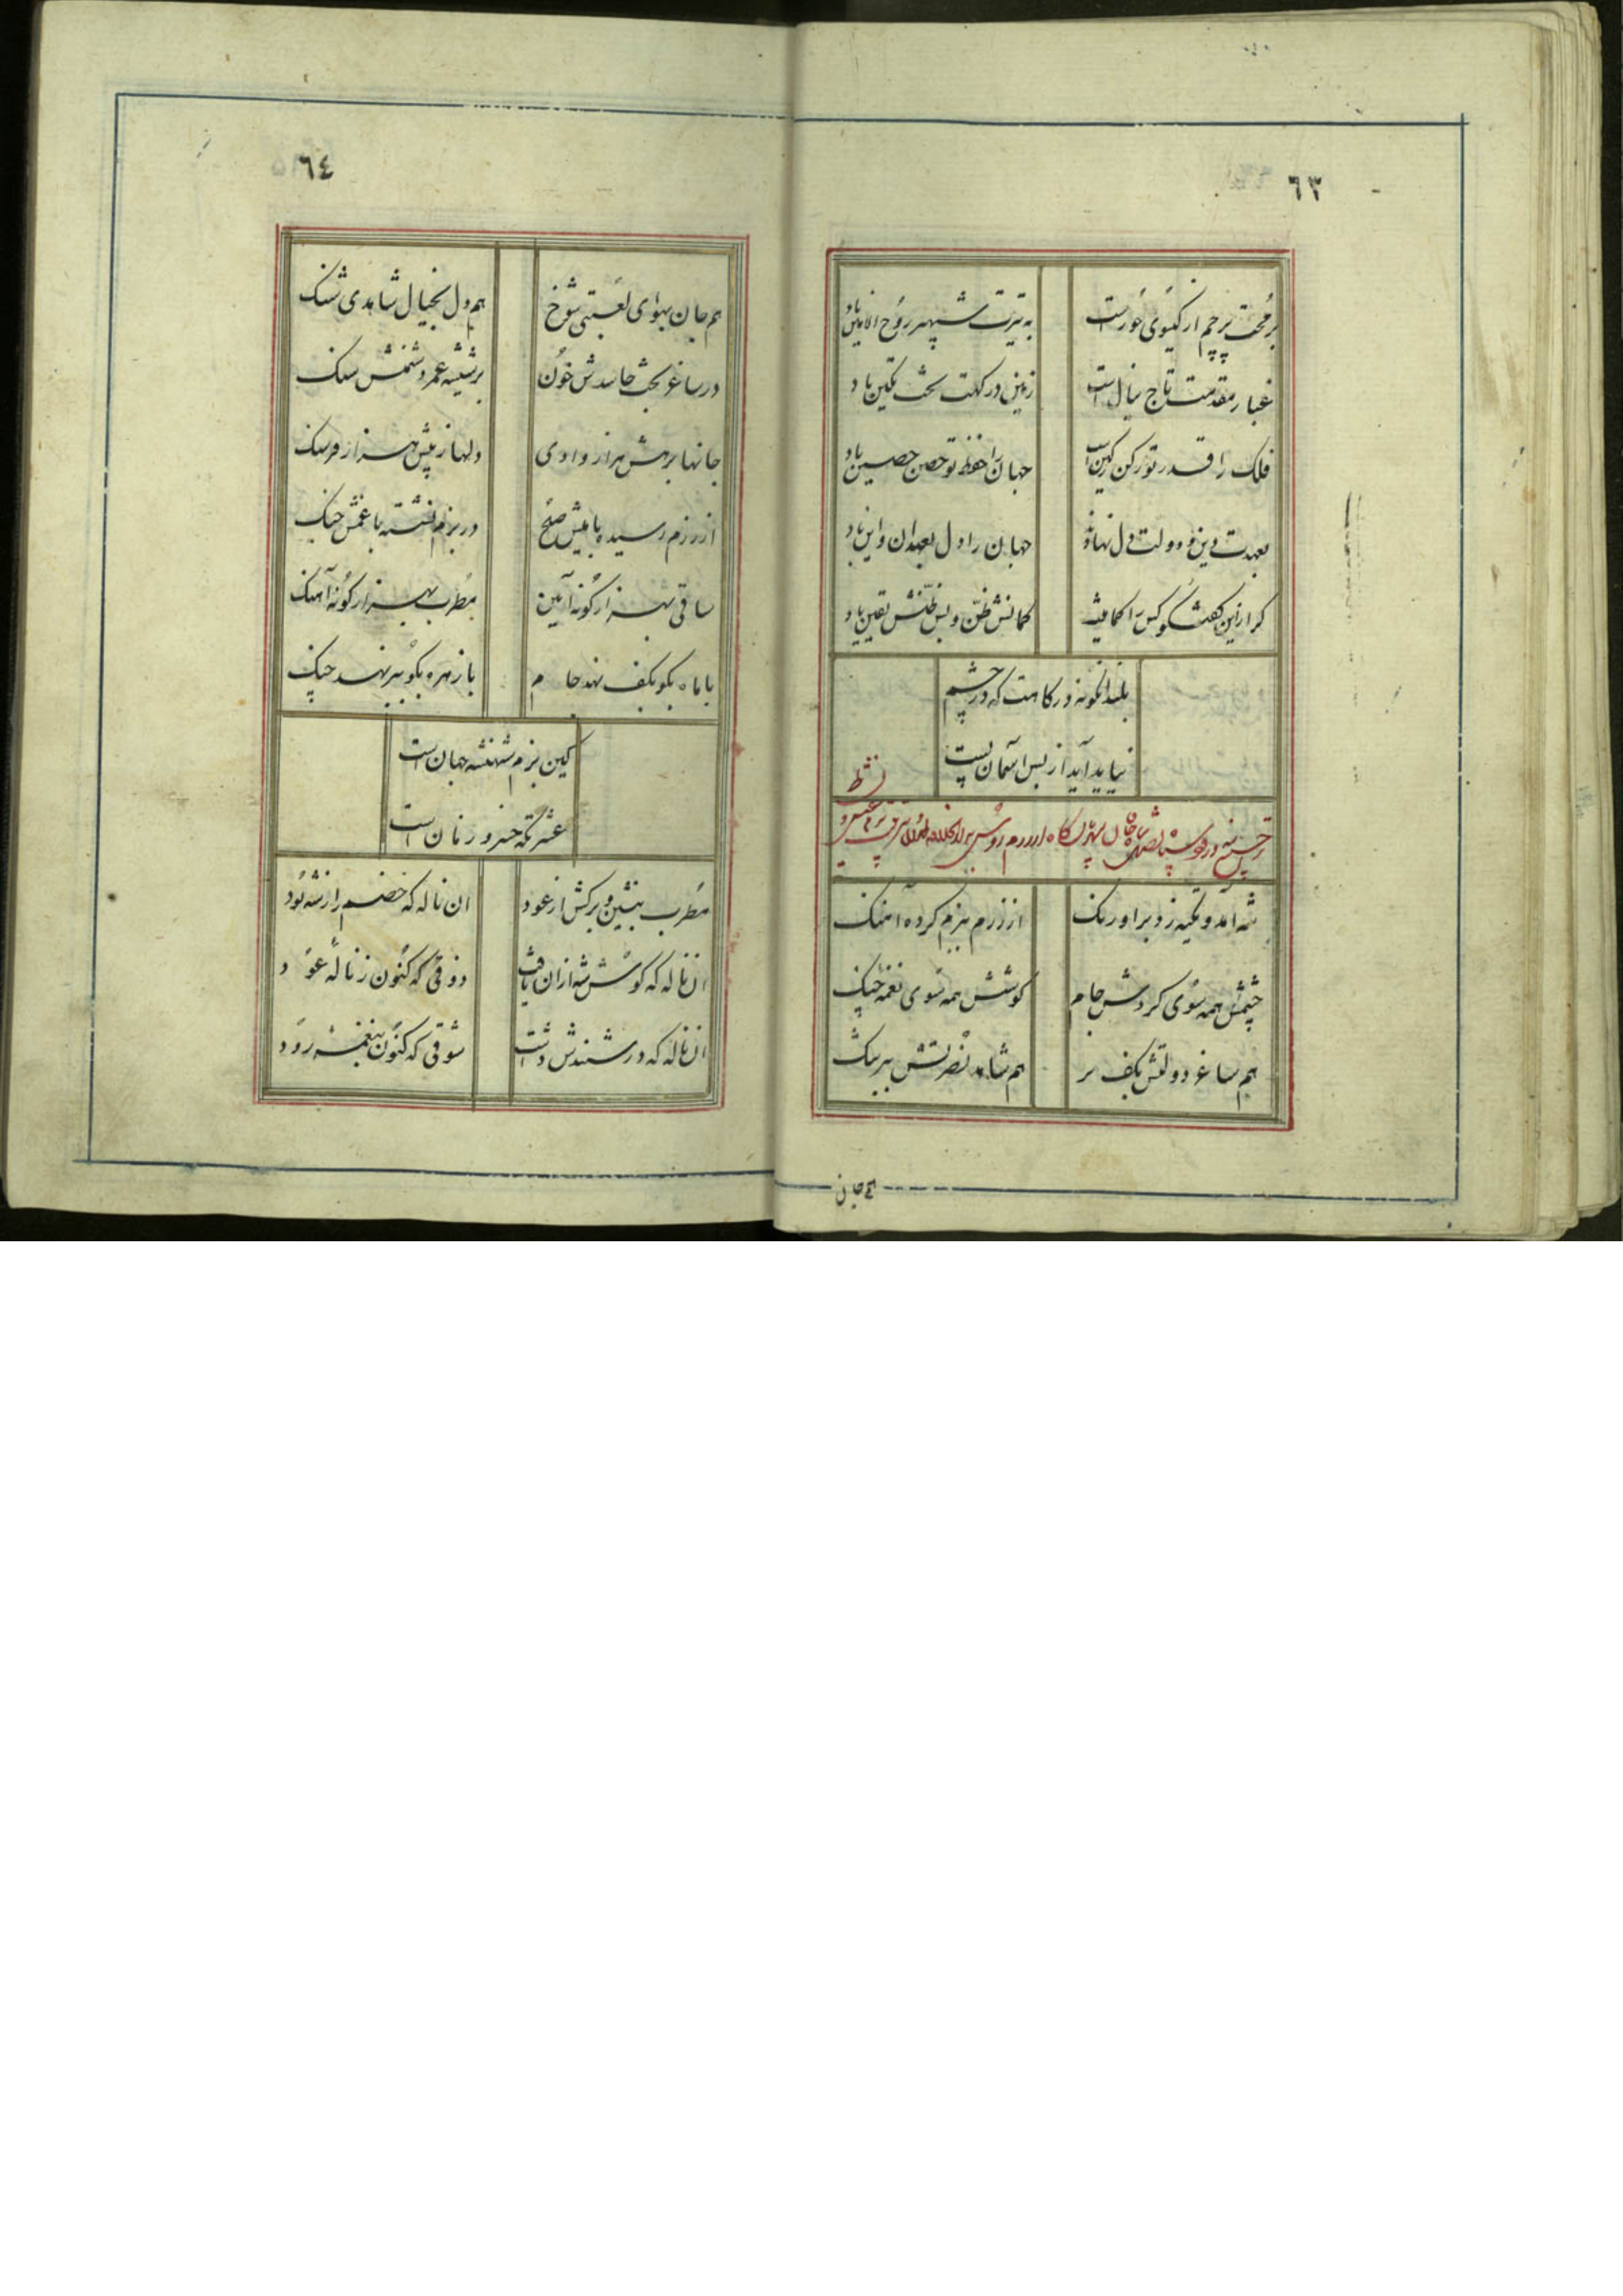 ٦٣
برمحت پرچم از گیسوی حورست
به تیرت شهپر روح الامین باد
غبار مقدمت تاج نیال است
زمین درکهت تخت تکین باد
فلک را قدر تو رکن رکین است
جهان را حفظ تو حصن حصین باد
بعهدت دین و دولت دل نهاده
جهان را دل بعهد ان و این باد
کمانش ظن و پس ظنش یقین باد
بلند انگونه درکاهت که در چشم
نیاید آید ار بس آسمان پست
شه آمد و تکیه زد بر اورنک
از رزم ببزم کرده آهنک
چشمش همه سوی کردش جام
کوشش همه سوی نغمه چنک
هم ساغر دولتش بکف بر
هم شاهد نصرتش ببر تنک
هم جان
٦٤
هم جان بهوای لعبتی شوخ
هم دل بخیال شاهدی شنک
در ساغر بخت حاسدش خون
بر شیشه عمر دشمنش سنک
جانها برهش هزار وادی
دلها ز پیش هزار فرسنک
از رزم رسیده با میش صلح
در بزم نشسته با غمش جنک
ساقی بهزار کونه آیین
مطرب بهزار کونه آهنک
با ماه بکو بکف نهد جام
با زهره بکو ببر نهد چنک
کین بزم شهنشه جهان است
عشرتکه خسرو زمان است
مطرب بنشین و برکش از عود
ان ناله که خصم را ز شه بود
ان ناله که کوش شه از ان یافت
ذوقی که کنون ز ناله عود
ان ناله که در شنیدنش داشت
شوقی که کنون بنغمه رود